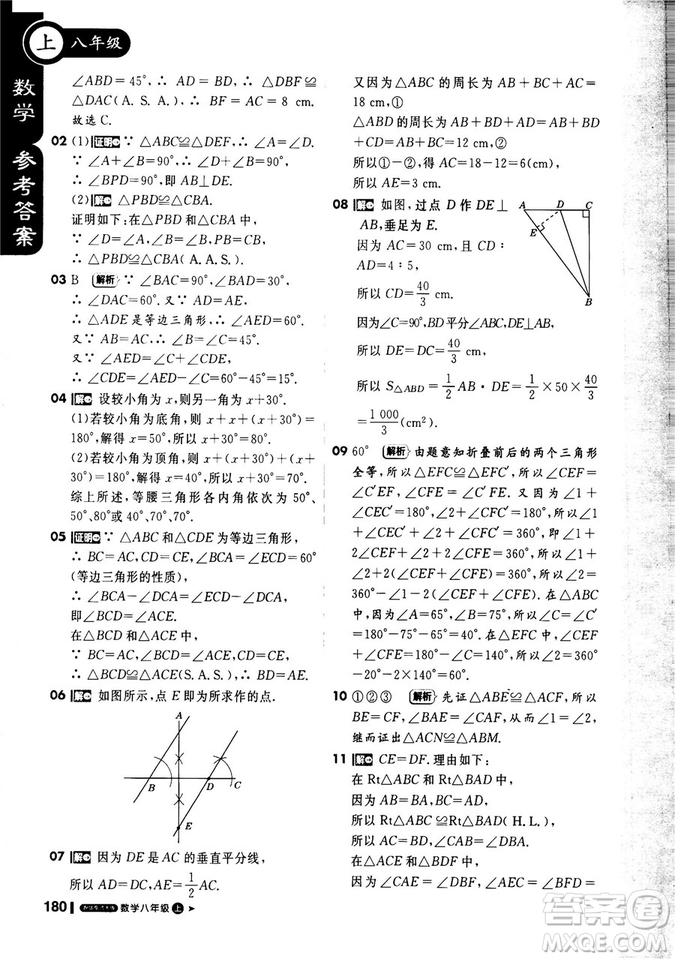 上 八年级
数学 参考答案
∠ABD=45°,∴ AD=BD,∴ △DBF≌
△DAC(A.S.A.),∴ BF=AC= 8 cm.
故选C.
02 (1)证明 ∵ △ABC≌△DEF,∴∠A=∠D.
∵ ∠A+∠B=90°,∴ ∠D+∠B=90°,
∴ ∠BPD=90°,即 AB⊥DE.
(2)解 △PBD≌△CBA.
证明如下:在△PBD 和△CBA 中,
∴ △PBD≌△CBA(A.A.S.).
03 B 解析 ∵ ∠BAC=90°,∠BAD=30°,
∴ ∠DAC=60°.又∵ AD=AE,
∴ △ADE 是等边三角形,∴ ∠AED=60°.
又∵ AB=AC,∴ ∠B=∠C=45°.
又∵ ∠AED=∠C+∠EDC,
∴ ∠EDC=60°-45°=15°.
04 解 设较小角为 x,则另一角为 x+30°.
(1)若较小角为底角,则 x+x+(x+30°)=
180°,解得 x=50°,则 x+30°=80°.
(2)若较小角为顶角,则 x+(x+30°)+(x+
30°)=180°,解得 x=40°,则 x+30°=70°.
综上所述,等腰三角形各内角依次为 50°、
50°、80°或 40°、70°、70°.
05 证明 ∵ △ABC 和△CDE 为等边三角形,
∴ BC=AC,CD=CE,∠BCA=∠ECD=60°
(等边三角形的性质),
∴ ∠BCA-∠DCA=∠ECD-∠DCA,
即∠BCD=∠ACE.
在△BCD 和△ACE 中,
∵ BC=AC,∠BCD=∠ACE,CD=CE,
∴ △BCD≌△ACE(S.A.S.),∴ BD=AE.
06 解 如图所示,点 E 即为所求作的点.
A
B D C
E
07 解 因为 DE 是 AC 的垂直平分线,
所以 AD=DC,AE=1/2 AC.
又因为△ABC 的周长为 AB+BC+AC=
18 cm,①
△ABD 的周长为 AB+BD+AD=AB+BD
+CD=AB+BC=12 (cm),②
所以①-②,得 AC=18-12=6 (cm).
所以 AE=3 cm.
08 解 如图,过点 D 作 DE⊥
AB,垂足为 E.
因为 AC=30 cm,且 CD:
AD=4:5,
所以 CD=40/3 cm.
A D C
E
B
因为∠C=90°,BD平分∠ABC,DE⊥AB,
所以 DE=DC=40/3 cm.
所以 S△ABD=1/2 AB·DE=1/2×50×40/3
=1 000/3(cm²).
09 60° 解析 由题意知折叠前后的两个三角形
全等,所以△EFC≌△EFC′,所以∠CEF=
∠C′EF,∠CFE=∠C′FE.又因为∠1+
∠CEC′=180°,∠2+∠CFC′=180°,所以
∠1+∠CEC′+∠2+∠CFC′=360°,即∠1
+∠2+2(∠CEF+∠CFE)=360°,所以
∠1=360°-∠2-2(∠CEF+∠CFE).在△ABC
中,因为∠A=65°,∠B=75°,所以∠C=∠C′=
180°-75°-65°=40°.在△CEF 中,∠CEF+
∠CFE=180°-∠C=140°,所以∠1=360°-
20°-2×140°=60°.
10 ①②③ 解析 先证△ABE≌△ACF,所以
BE=CF,∠BAE=∠CAF,所以∠1=∠2,
继而证出△ACN≌△ABM.
11 解 CE=DF.理由如下:
在 Rt△ABC 和 Rt△BAD 中,
因为 AB=BA,AC=BD,
所以 Rt△ABC≌Rt△BAD(H.L.),所以
AC=BD,∠CAB=∠DBA.
在△ACE 和△BDF 中,
因为∠CAE=∠DBF,∠AEC=∠BFD=
180 数学八年级 上
答案圈
MXQE.COM